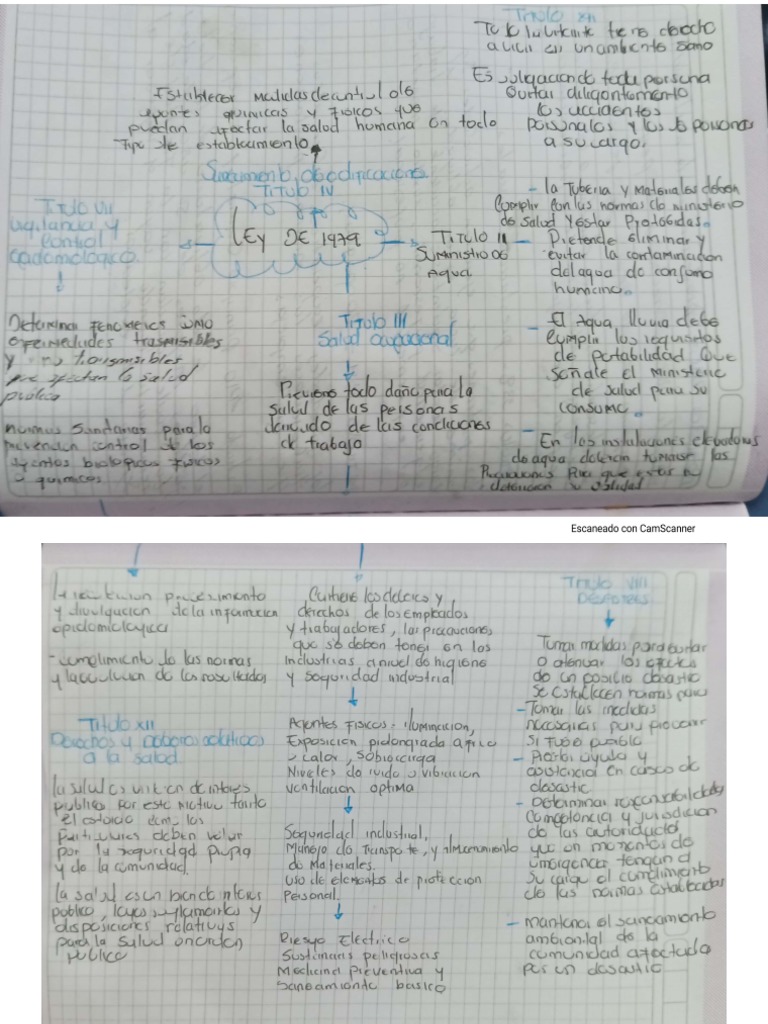 Titulo XII
Todo habitante tiene derecho
a vivir en un ambiente sano
Es obligación de toda persona
evitar diligentemente
los accidentes
personales y los de personas
a su cargo.
Establecer medidas de control de
agentes quimicos y Fisicos que
puedan afectar la salud humana en todo
Tipo de establecimiento
Saneamiento de edificaciones
TITULO IV
LEY DE 1979
Titulo VII
vigilancia y
control
epidemiologico
Determinar Fenomenos como
enfermedades trasmisibles
y no transmisibles,
que afectan la salud
publica
normas sanitarias para la
prevención control de los
agentes biologicos fisicos
o quimicos
TITULO II
SUMINISTRO DE
Agua
- la Tuberia y Materiales deben
Cumplir con las normas de ministerio
de Salud Y estar Protegidas.
- Pretende eliminar y
evitar la contaminación
del agua de consumo
humano.
- El Agua lluvia debe
cumplir los requisitos
de Portabilidad Que
señale el Ministerio
de salud para su
consumo.
- En las instalaciones elevadoras
de agua deberan tomarse las
Precauciones Para que
Titulo III
Salud ocupacional
Previene todo daño para la
salud de las personas
derivado de las condiciones
de trabajo
Escaneado con CamScanner
procesamiento
y divulgación de la información
epidemiologica
- cumplimiento de las normas
y la evaluación de los resultados
Titulo XII
Derechos y deberes relativos
a la salud
la salud es un bien de interes
publico Por este motivo tanto
el estado como los
Particulares deben velar
por la seguridad propia
y de la comunidad.
la salud es un bien de interes
publico, leyes reglamentos y
disposiciones relativas
para la salud on orden
publico
Contiene los deberes y
derechos de los empleados
y trabajadores, las precauciones
que se deben tener en las
Industrias a nivel de higiene
y seguridad industrial
Agentes Fisicos: iluminación,
Exposición prolongada a frio
o calor, sobrecarga
Niveles de ruido o vibración
ventilación optima
Seguridad industrial,
Manejo de Transporte, y almacenamiento
de Materiales.
Uso de elementos de protección
Personal.
Riesgo Electrico
Sustancias peligrosas
Medicina Preventiva y
Saneamiento basico
Titulo VIII
Desastres
Tomar medidas para evitar
o atenuar los efectos
de un posible desastre
Se establecen normas para
- Tomar las medidas
necesarias para prevenir
si fuese posible
- Prestar ayuda y
asistencia en casos de
desastre
- Determinar responsabilidades
Competencia y jurisdicción
de las autoridades
que en momentos de
emergencias tengan a
su cargo el cumplimiento
de las normas establecidas
- mantener el saneamiento
ambiental de la
comunidad afectada
por un desastre